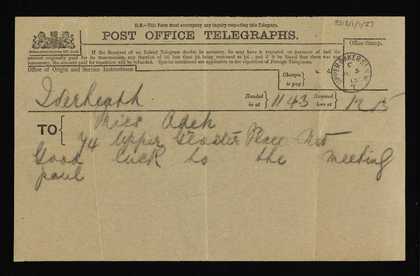 N.B.—This Form must accompany any inquiry respecting this Telegram.
POST OFFICE TELEGRAPHS.
If the Receiver of an Inland Telegram doubts its accuracy, he may have it repeated on payment of half the
amount originally paid for its transmission, any fraction of 1d. less than ½d. being reckoned as ½d.; and if it be found that there was any
inaccuracy, the amount paid for repetition will be refunded. Special conditions are applicable to the repetition of Foreign Telegrams.
Office of Origin and Service Instructions.
Office Stamp.
Charges to pay
Handed in at
11 43
Received here at
12 15
TO
Miss Adek
74 Upper Gloster Place NW
Good luck to the meeting
paul